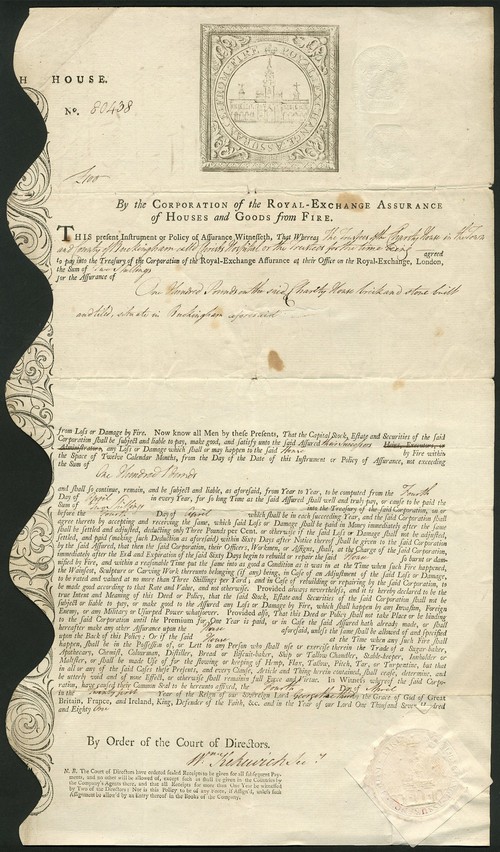 H HOUSE.
No. 80438
ASSURANCE FROM FIRE BY ROYAL EXCHANGE
By the CORPORATION of the ROYAL-EXCHANGE ASSURANCE
of HOUSES and GOODS from FIRE.
THIS present Instrument or Policy of Assurance Witnesseth, That Whereas The Trustees of the Charity House in the Town
and County of Buckingham called Christs Hospital or the Trustees for the time being agreed
to pay into the Treasury of the Corporation of the Royal-Exchange Assurance at their Office on the Royal-Exchange, London,
the Sum of Shillings
for the Assurance of
One Hundred Pounds on the said Charity House brick and stone built
and tiled, situate in Buckingham aforesaid
from Loſs or Damage by Fire. Now know all Men by these Presents, That the Capital Stock, Eſtate and Securities of the ſaid
Corporation ſhall be ſubject and liable to pay, make good, and ſatisfy unto the ſaid Aſſured their Successors Heirs, Executors, or
Adminiſtrators, any Loſs or Damage which ſhall or may happen to the ſaid House by Fire within
the Space of Twelve Calendar Months, from the Day of the Date of this Inſtrument or Policy of Aſſurance, not exceeding
the Sum of
One Hundred Pounds
and ſhall ſo continue, remain, and be ſubject and liable, as aforeſaid, from Year to Year, to be computed from the Fourth
Day of April in every Year, for ſo long Time as the ſaid Aſſured ſhall well and truly pay, or cauſe to be paid the
Sum of Shillings into the Treaſury of the ſaid Corporation, on or
before the Fourth Day of April which ſhall be in each ſucceeding Year, and the ſaid Corporation ſhall
agree thereto by accepting and receiving the ſame, which ſaid Loſs or Damage ſhall be paid in Money immediately after the ſame
ſhall be ſettled and adjuſted, deducting only Three Pounds per Cent. or otherwiſe if the ſaid Loſs or Damage ſhall not be adjuſted,
ſettled, and paid (making ſuch Deduction as aforeſaid) within Sixty Days after Notice thereof ſhall be given to the ſaid Corporation
by the ſaid Aſſured, that then the ſaid Corporation, their Officers, Workmen, or Aſſigns, ſhall, at the Charge of the ſaid Corporation,
immediately after the End and Expiration of the ſaid Sixty Days begin to rebuild or repair the ſaid House ſo burnt or dam-
nified by Fire, and within a reaſonable Time put the ſame into as good a Condition as it was in at the Time when ſuch Fire happened,
the Wainſcot, Sculpture or Carving Work thereunto belonging (if any) being, in Caſe of an Adjuſtment of the ſaid Loſs or Damage,
to be rated and valued at no more than Three Shillings per Yard; and in Caſe of rebuilding or repairing the Corporation, to
be made good according to that Rate and Value, and not otherwiſe. Provided always nevertheleſs, and it is hereby declared to be the
true Intent and Meaning of this Deed or Policy, that the ſaid Stock, Eſtate and Securities of the ſaid Corporation ſhall not be
ſubject or liable to pay, or make good to the Aſſured any Loſs or Damage by Fire, which ſhall happen by any Invaſion, Foreign
Enemy, or any Military or Uſurped Power whatſoever. Provided alſo, That this Deed or Policy ſhall not take Place or be binding
to the ſaid Corporation until the Premium for One Year is paid, or in Caſe the ſaid Aſſured hath already made, or ſhall
hereafter make any other Aſſurance upon the House aforeſaid, unleſs the ſame ſhall be allowed of and ſpecified
upon the Back of this Policy: Or if the ſaid House at the Time when any ſuch Fire ſhall
happen, ſhall be in the Poſſeſſion of, or Lett to any Perſon who ſhall uſe or exerciſe therein the Trade of a Sugar-baker,
Apothecary, Chemiſt, Colourman, Diſtiller, Bread or Biſcuit-baker, Ship or Tallow Chandler, Stable-keeper, Innholder or
Malſter, or ſhall be made Uſe of for the ſtowing or keeping of Hemp, Flax, Tallow, Pitch, Tar, or Turpentine, but that
in all or any of the ſaid Caſes theſe Preſents, and every Clauſe, Article and Thing herein contained, ſhall ceaſe, determine, and
be utterly void and of none Effect, or otherwiſe ſhall remain in full Force and Virtue. In Witneſs whereof the ſaid Corpo-
ration, have cauſed their Common Seal to be hereunto affixed, the Fourth Day of April
in the Twenty first Year of the Reign of our Sovereign Lord George the Third by the Grace of God of Great
Britain, France, and Ireland, King, Defender of the Faith, &c. and in the Year of our Lord One Thouſand Seven Hundred
and Eighty One
By Order of the Court of Directors.
N. B. The Court of Directors have ordered ſealed Receipts to be given for all ſubſequent Pay-
ments, and no other will be allowed of, except ſuch as ſhall be given in the Counties by
the Company's Agents there, and that all Receipts for more than One Year be witneſſed
by Two of the Directors: Nor is this Policy to be of any Force, if Aſſign'd, unleſs ſuch
Aſſignment be allow'd by an Entry thereof in the Books of the Company.